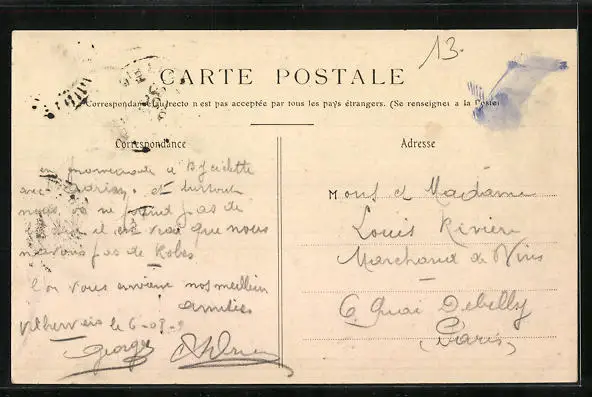 13.
CARTE POSTALE
Correspondance au recto n'est pas acceptée par tous les pays étrangers. (Se renseigner a la Poste)
Correspondance
Adresse
en promenade a Byciclette
avec et surtout
ne prend pas de
il est vrai que nous
n'avons pas de Robes
vous envoien nos meilleurs
amitiés
le 6-09-
Georges
Mons et Madame
Louis Riviere
Marchand de Vins
6 Quai Debilly
(Paris)